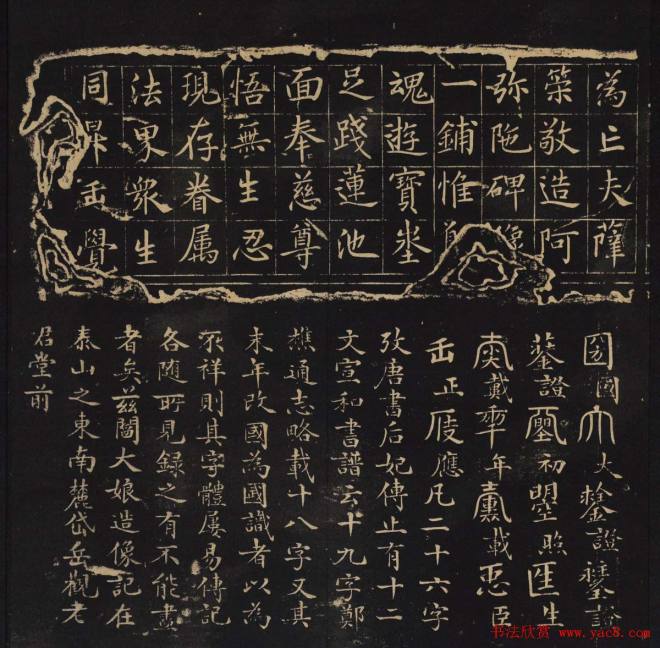 為亡夫薩
築敬造阿
弥陁碑像
一鋪惟
魂遊寶坐
足踐蓮池
面奉慈尊
悟無生忍
現存眷属
法界衆生
同昇𠙺覺
圀國大證證
證初曌照𤯔生
戴𠡦年載𢘑臣
𠙺正應凡二十六字
攷唐書后妃傳止有十二
文宣和書譜云十九字鄭
樵通志略載十八字又其
末年改國為國識者以為
不祥則其字體屢易傳記
各随所見録之有不能盡
者矣兹閻大娘造像記在
泰山之東南麓岱岳觀老
君堂前
书法欣赏 www.yac8.com